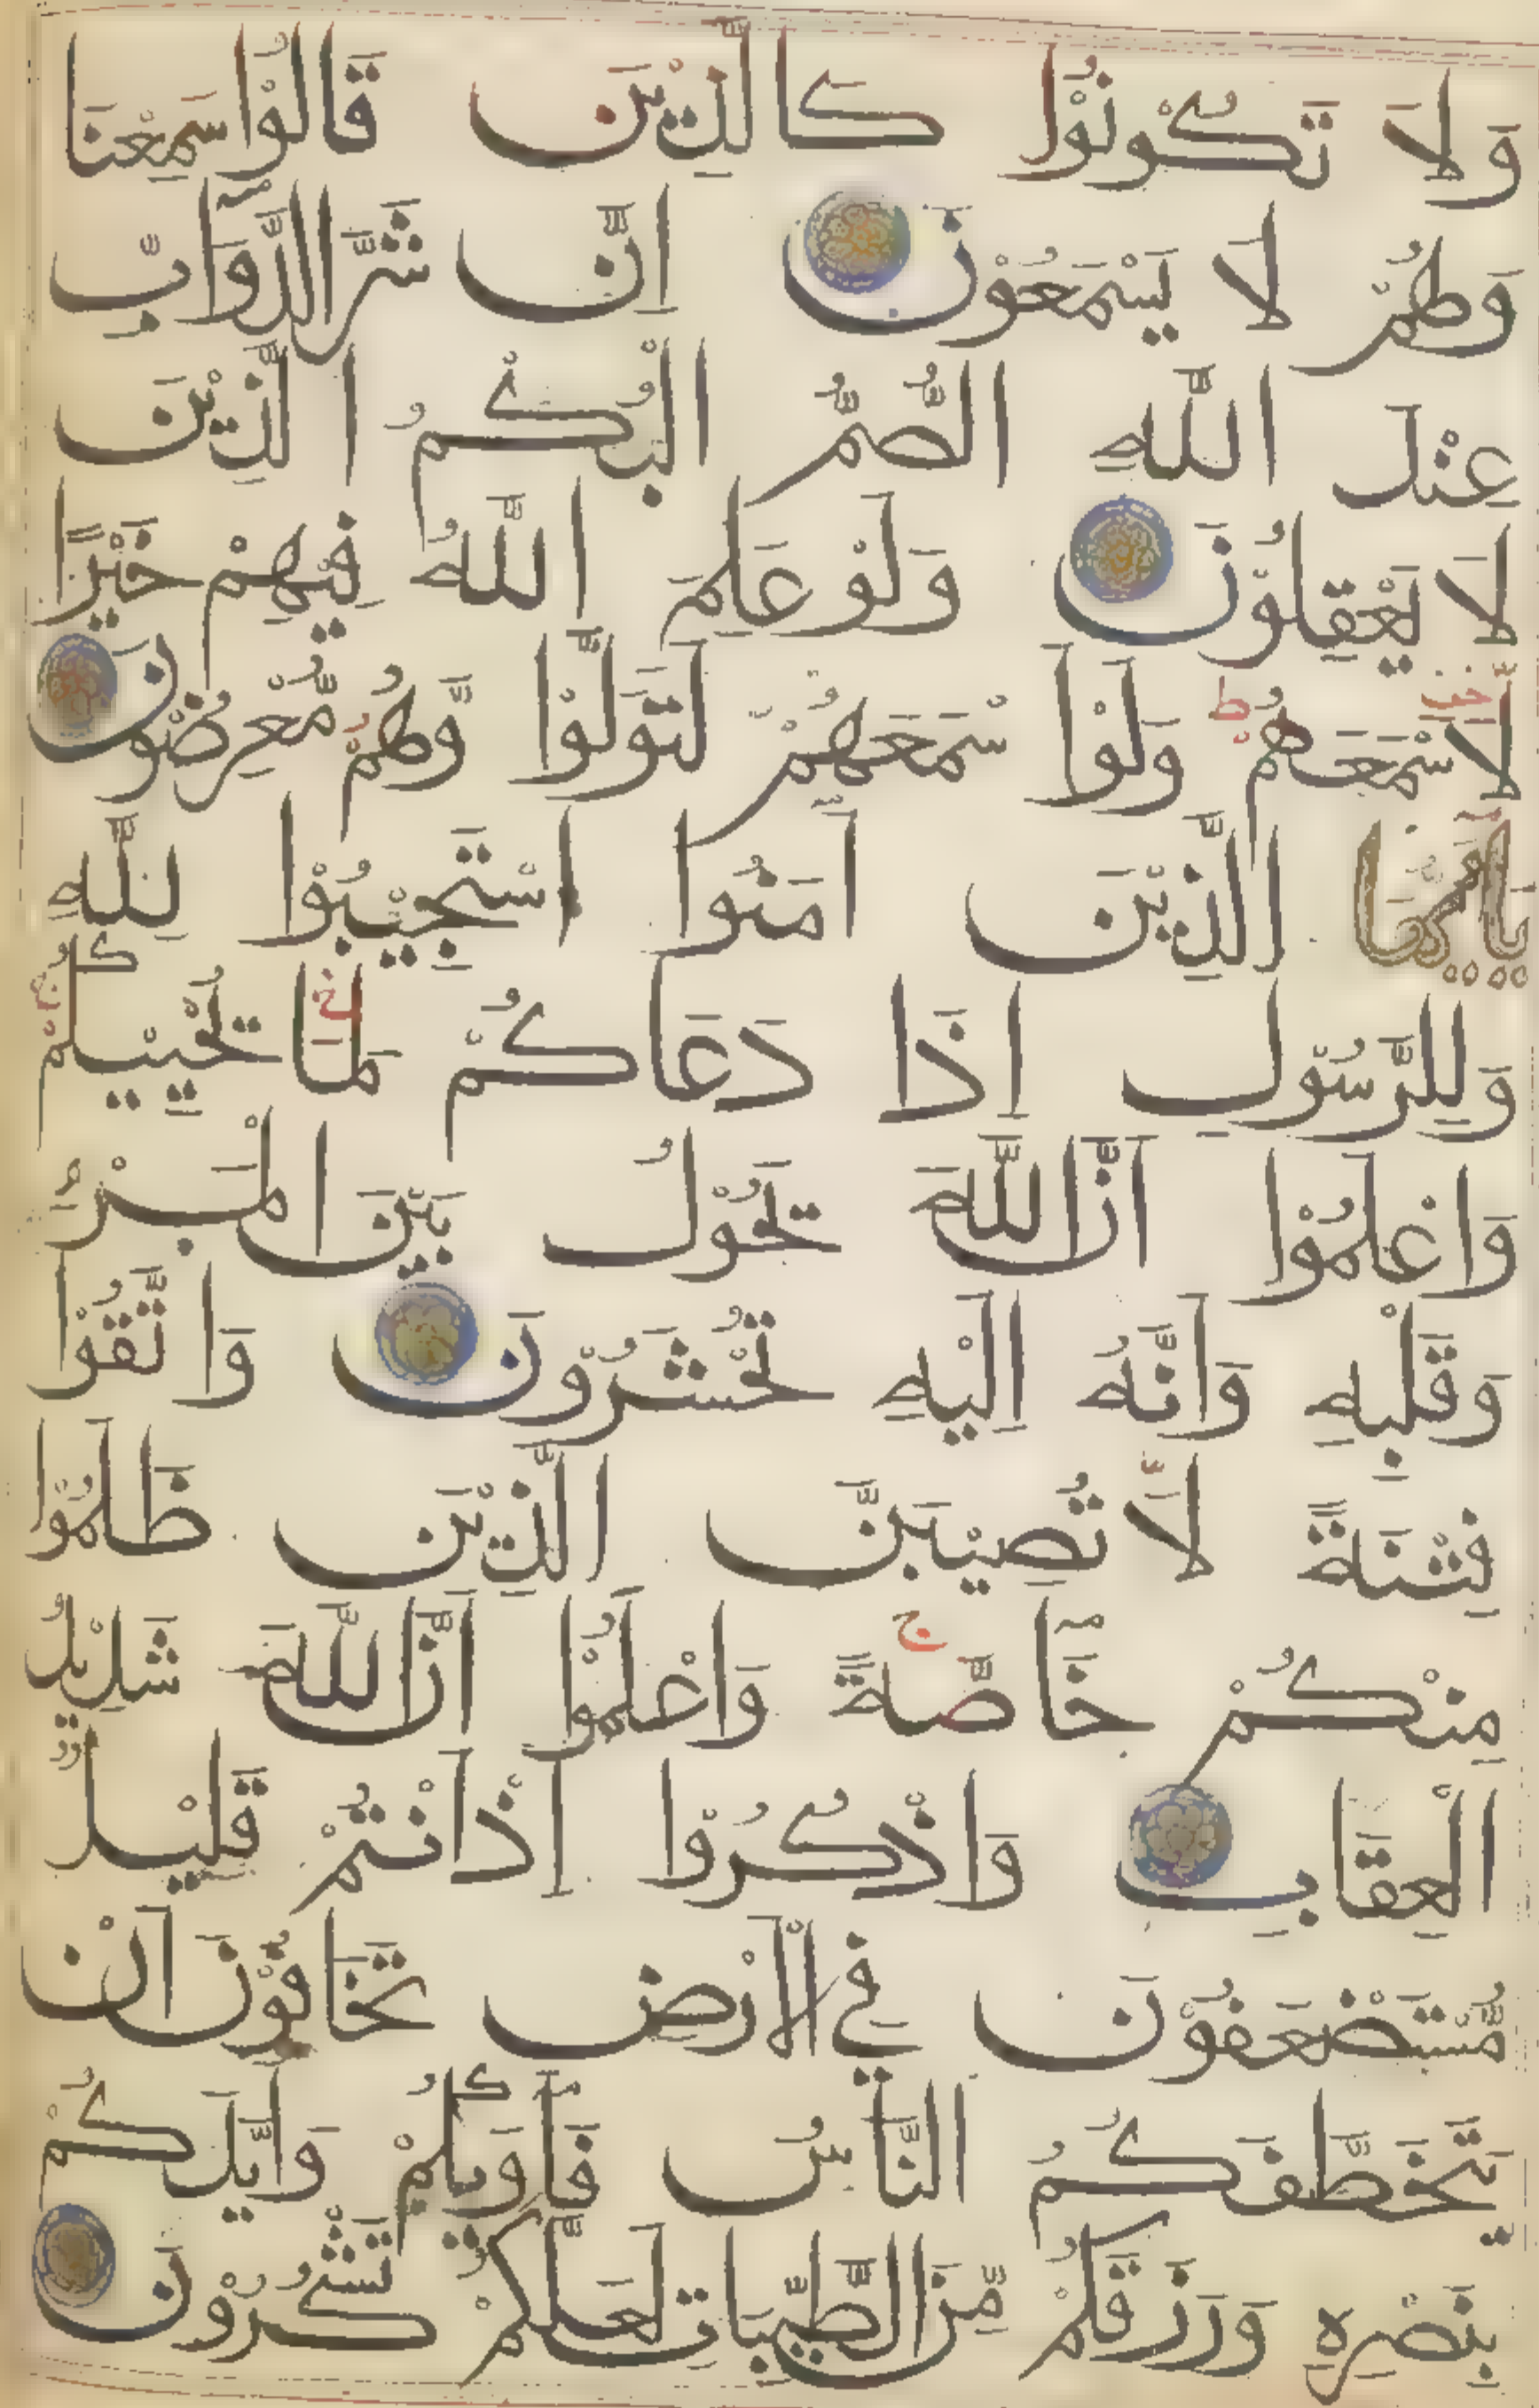 وَلَا تَكُونُوْا كَالَّذِيْنَ قَالُوْا سَمِعْنَا
وَهُمْ لَا يَسْمَعُوْنَ اِنَّ شَرَّ الدَّوَآبِّ
عِنْدَ اللَّهِ الصُّمُّ الْبُكْمُ الَّذِيْنَ
لَا يَعْقِلُوْنَ وَلَوْ عَلِمَ اللَّهُ فِيْهِمْ خَيْرًا
لَّاَسْمَعَهُمْ ط وَلَوْ اَسْمَعَهُمْ لَتَوَلَّوْا وَّهُمْ مُّعْرِضُوْنَ
يٰاَيُّهَا الَّذِيْنَ اٰمَنُوا اسْتَجِيْبُوْا لِلَّهِ
وَلِلرَّسُوْلِ اِذَا دَعَاكُمْ لِمَا يُحْيِيْكُمْ
وَاعْلَمُوْا اَنَّ اللَّهَ يَحُوْلُ بَيْنَ الْمَرْءِ
وَقَلْبِهِ وَاَنَّهُ اِلَيْهِ تُحْشَرُوْنَ وَاتَّقُوْا
فِتْنَةً لَّا تُصِيْبَنَّ الَّذِيْنَ ظَلَمُوْا
مِنْكُمْ خَآصَّةً ج وَاعْلَمُوْا اَنَّ اللَّهَ شَدِيْدُ
الْعِقَابِ وَاذْكُرُوْا اِذْ اَنْتُمْ قَلِيْلٌ
مُّسْتَضْعَفُوْنَ فِي الْاَرْضِ تَخَافُوْنَ اَنْ
يَّتَخَطَّفَكُمُ النَّاسُ فَاٰوٰىكُمْ وَاَيَّدَكُمْ
بِنَصْرِهِ وَرَزَقَكُمْ مِّنَ الطَّيِّبَاتِ لَعَلَّكُمْ تَشْكُرُوْنَ